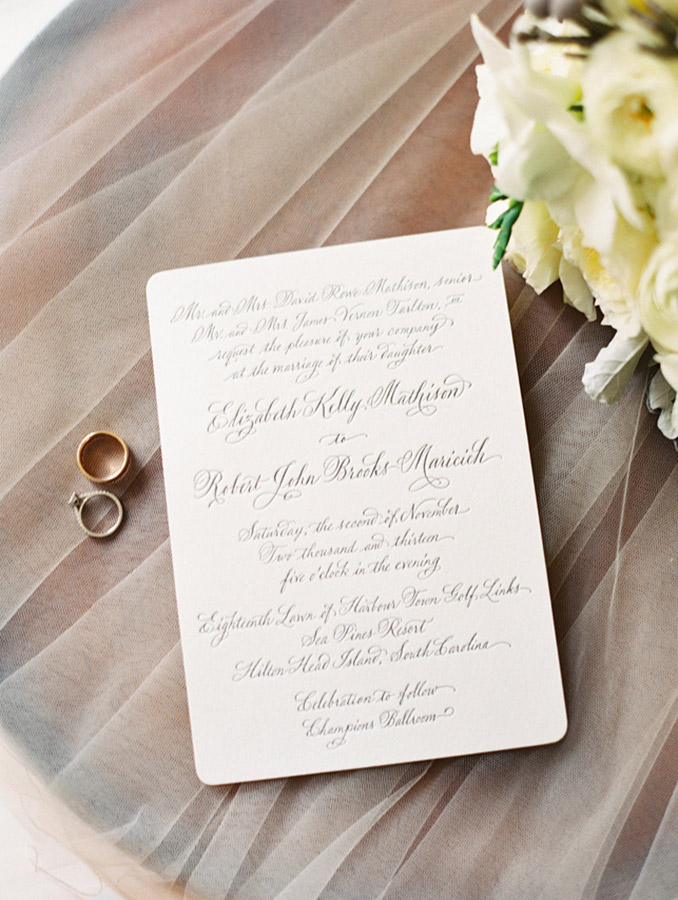 Mr. and Mrs. David Rowe Mathison, senior
Mr. and Mrs. James Vernon Tarlton, III
request the pleasure of your company
at the marriage of their daughter
Elizabeth Kelly Mathison
to
Robert John Brooks Maricich
Saturday, the second of November
Two thousand and thirteen
five o'clock in the evening
Eighteenth Lawn of Harbour Town Golf Links
Sea Pines Resort
Hilton Head Island, South Carolina
Celebration to follow
Champions Ballroom